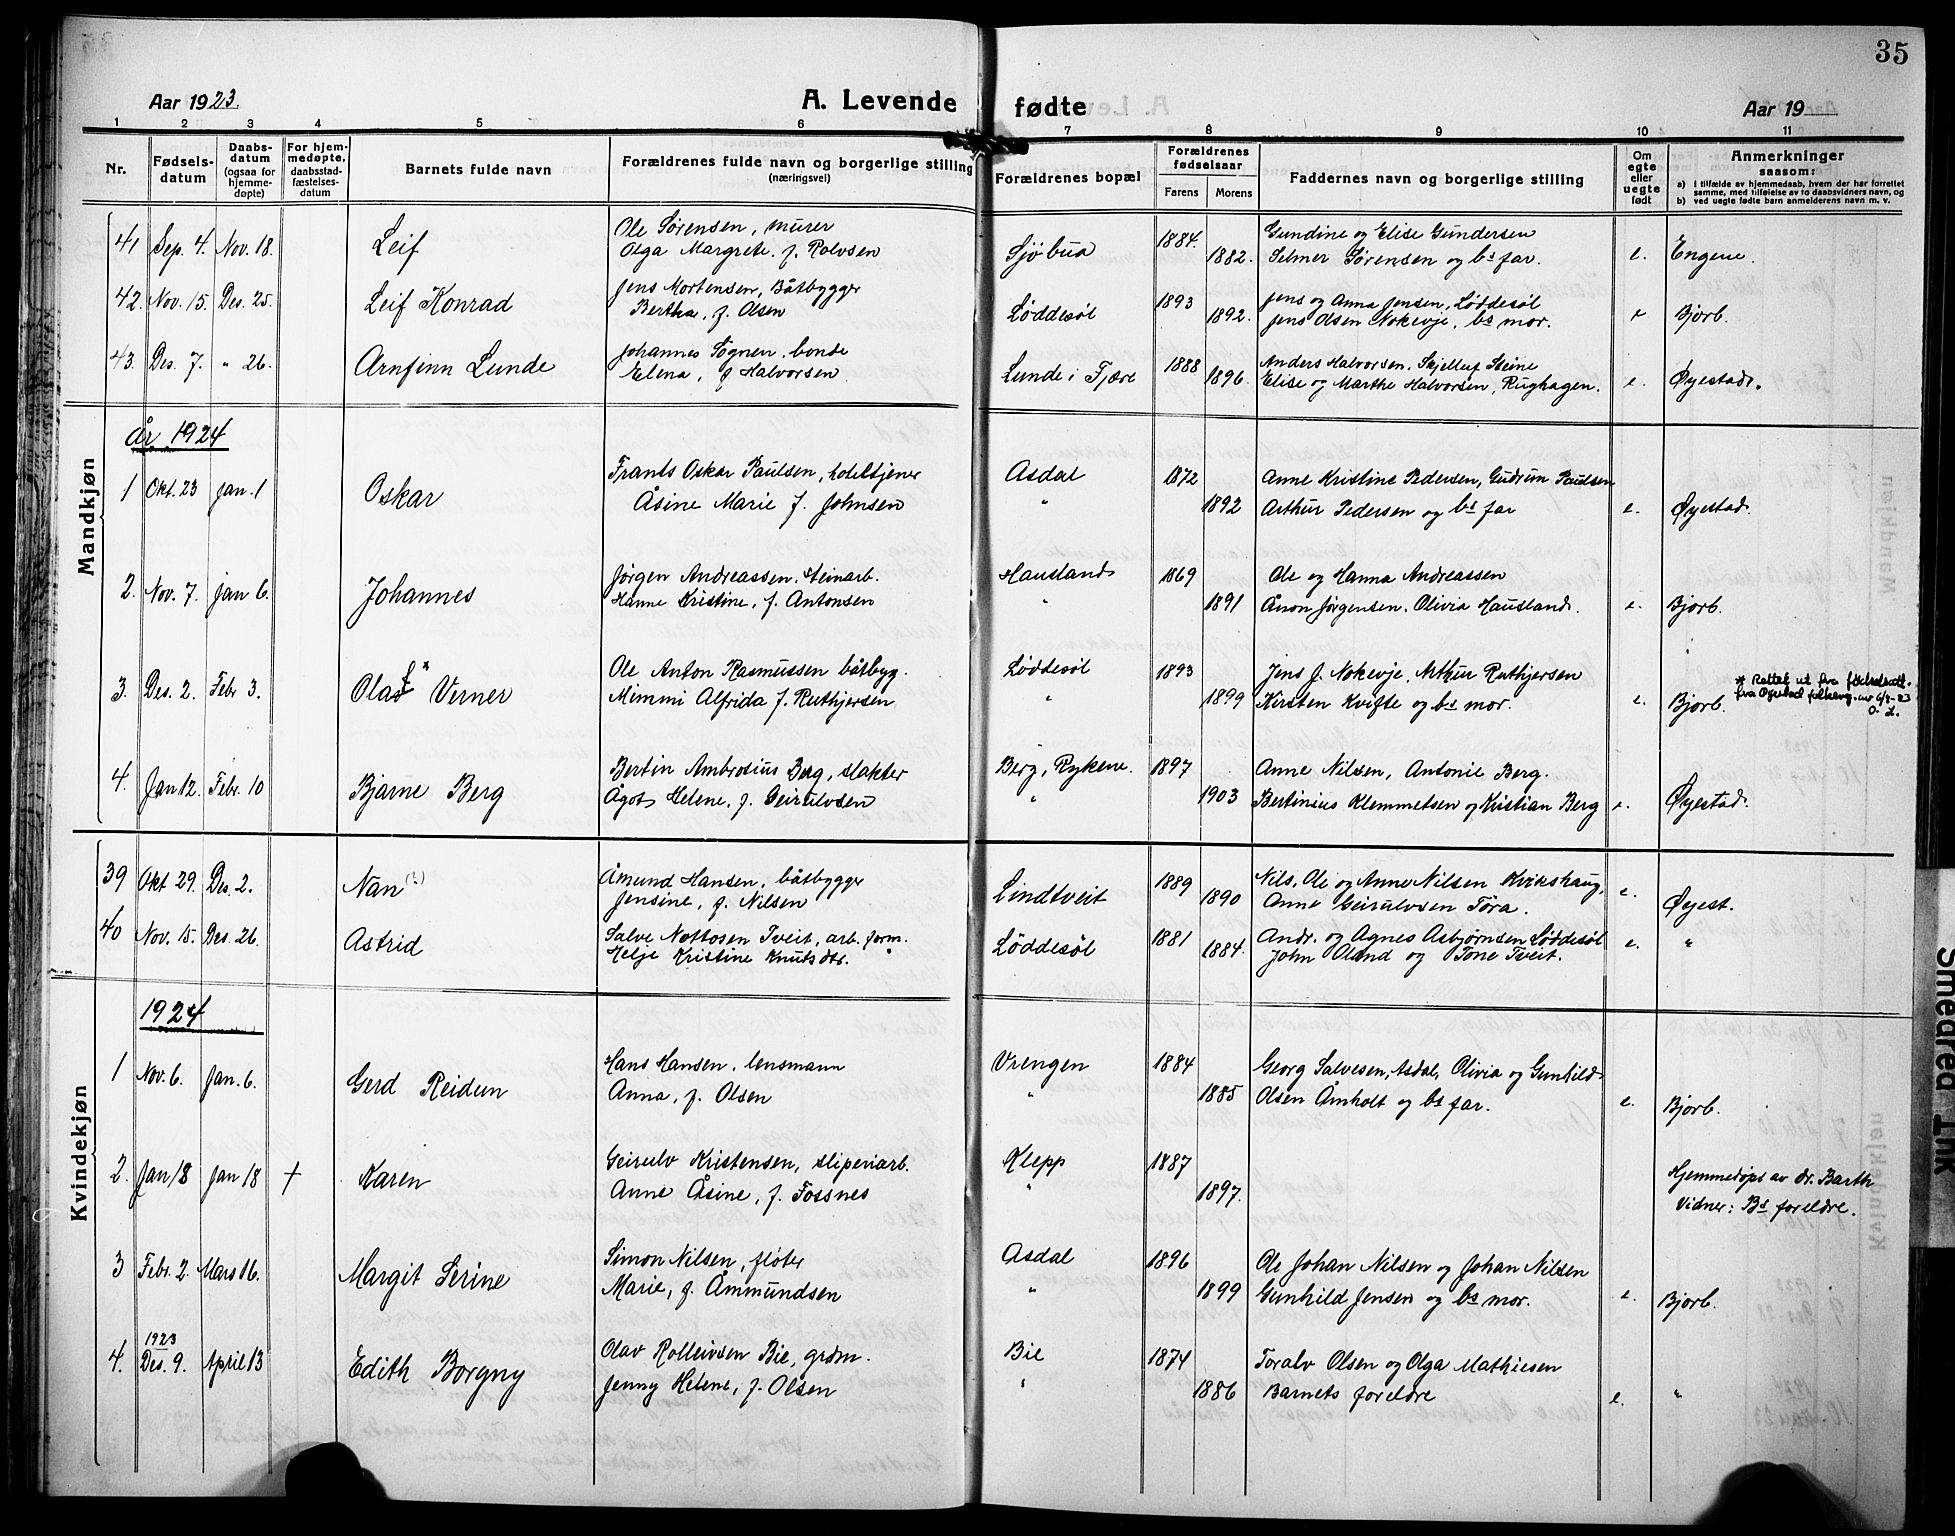 35
Aar 1923.
A. Levende fødte
Aar 19
1 2 3 4 5 6 7 8 9 10 11
Nr.
Fødsels-datum
Daabs-datum (ogsaa for hjemme-døpte)
For hjem-medøpte, daabsstad-fæstelses-datum
Barnets fulde navn
Forældrenes fulde navn og borgerlige stilling
(næringsvei)
Forældrenes bopæl
Forældrenes fødselsaar
Farens Morens
Faddernes navn og borgerlige stilling
Om egte eller uegte født
Anmerkninger
saasom:
a) i tilfælde av hjemmedaab, hvem der har forrettet samme, med tilføielse av to daabsvidners navn, og
b) ved uegte fødte barn anmelderens navn m. v.
Mandkjøn
41 Sep. 4. Nov. 18. Leif Ole Sørensen, murer Sjöbua 1884. Gundine og Elise Gundersen
Olga Margrete. f. Rolvsen 1882. Selmer Sørensen og bs far. e. Engene.
42. Nov. 15. Des. 25. Leif Konrad Jens Mortensen, Båtbygger Løddesøl 1893 Jens og Anna Jensen, Løddesøl
Bertha, f. Olsen 1892. Jens Olsen Nokevje, bs mor. e Bjorb.
43. Des. 7. " 26. Arnfinn Lunde Johannes Sognen, bonde Lunde i Fjære 1888 Anders Halvorsen, Skjelluf Steine
Elena, f Halvorsen 1896. Elise og Marthe Halvorsen, Rughagen. e. Øyestad.
år 1924
1 Okt. 23 Jan. 1 Oskar Frants Oskar Paulsen, hoteltjener Asdal 1872 Anne Kristine Pedersen, Gudrun Paulsen
Åsine Marie f. Johnsen " 1892 Arthur Pedersen og bs far e. Øyestad.
2. Nov. 7. Jan 6. Johannes Jørgen Andreassen, steinarb. Hausland 1869 Ole og Hanna Andreassen
Hanne Kristine, f. Antonsen " 1891 Ånon Jørgensen, Olivia Hausland. e. Bjorb.
3. Des. 2. Febr 3. Olaf * Verner Ole Anton Rasmussen båtbyg. Løddesøl 1893 Jens J. Nokevje, Arthur Ruthjersen
Mimmi Alfrida f. Ruthjersen " 1899 Kirsten Kvifte og bs mor. e. Bjorb.
* Rettet ut fra fødselsatt. fra Øyestad folkereg. av 6/8-23 O. L.
4. Jan 12. Febr. 10 Bjarne Berg Bertin Ambrosius Berg, slakter Berg, Rykene. 1897 Anne Nilsen, Antonie Berg.
Ågot Helene, f. Geirulvsen " 1903 Bertinius Klemmetsen og Kristian Berg e. Øyestad.
Kvindekjøn
39 Okt 29. Des. 2. Nan (?) Åmund Hansen, båtbygger Lindtveit 1889 Nils, Ole og Anne Nilsen Kvikshaug,
Jensine, f. Nilsen 1890 Anne Geirulvsen Töra. e. Øyest.
40 Nov. 15. Des. 26. Astrid Salve Nottosen Tveit, arb. form. Löddesøl 1881 Andr. og Agnes Asbjørnsen Løddesøl
Helje Kristine Knutsdtr. " 1884. John Øland og Tone Tveit. e. "
1924
1 Nov. 6. Jan. 6. Gerd Reidun Hans Hansen, lensmann Vrengen 1884 Georg Salvesen, Asdal, Olivia og Gunhild
Anna, f. Olsen " 1885 Olsen Åmholt og bs far. e. Bjorb.
2. Jan 18 Jan 18 † Karen Geirulv Kristensen, sliperiarb. Klepp 1887 Hjemmedøpt av dr. Barth
Anne Åsine, f. Fossnes " 1897. Vidner: Bs foreldre.
3 Febr. 2. Mars 16. Margit Serine Simon Nilsen, fløter Asdal 1896 Ole Johan Nilsen og Johan Nilsen
Marie, f. Åmmundsen " 1899 Gunhild Jensen og bs mor. e. Bjorb.
4. 1923 Des. 9. April 13 Edith Borgny Olav Rolleivsen Bie, grdm. Bie 1874 Toralv Olsen og Olga Mathiesen
Jenny Helene, f. Olsen " 1886 Barnets foreldre e. "
Smeared Ink